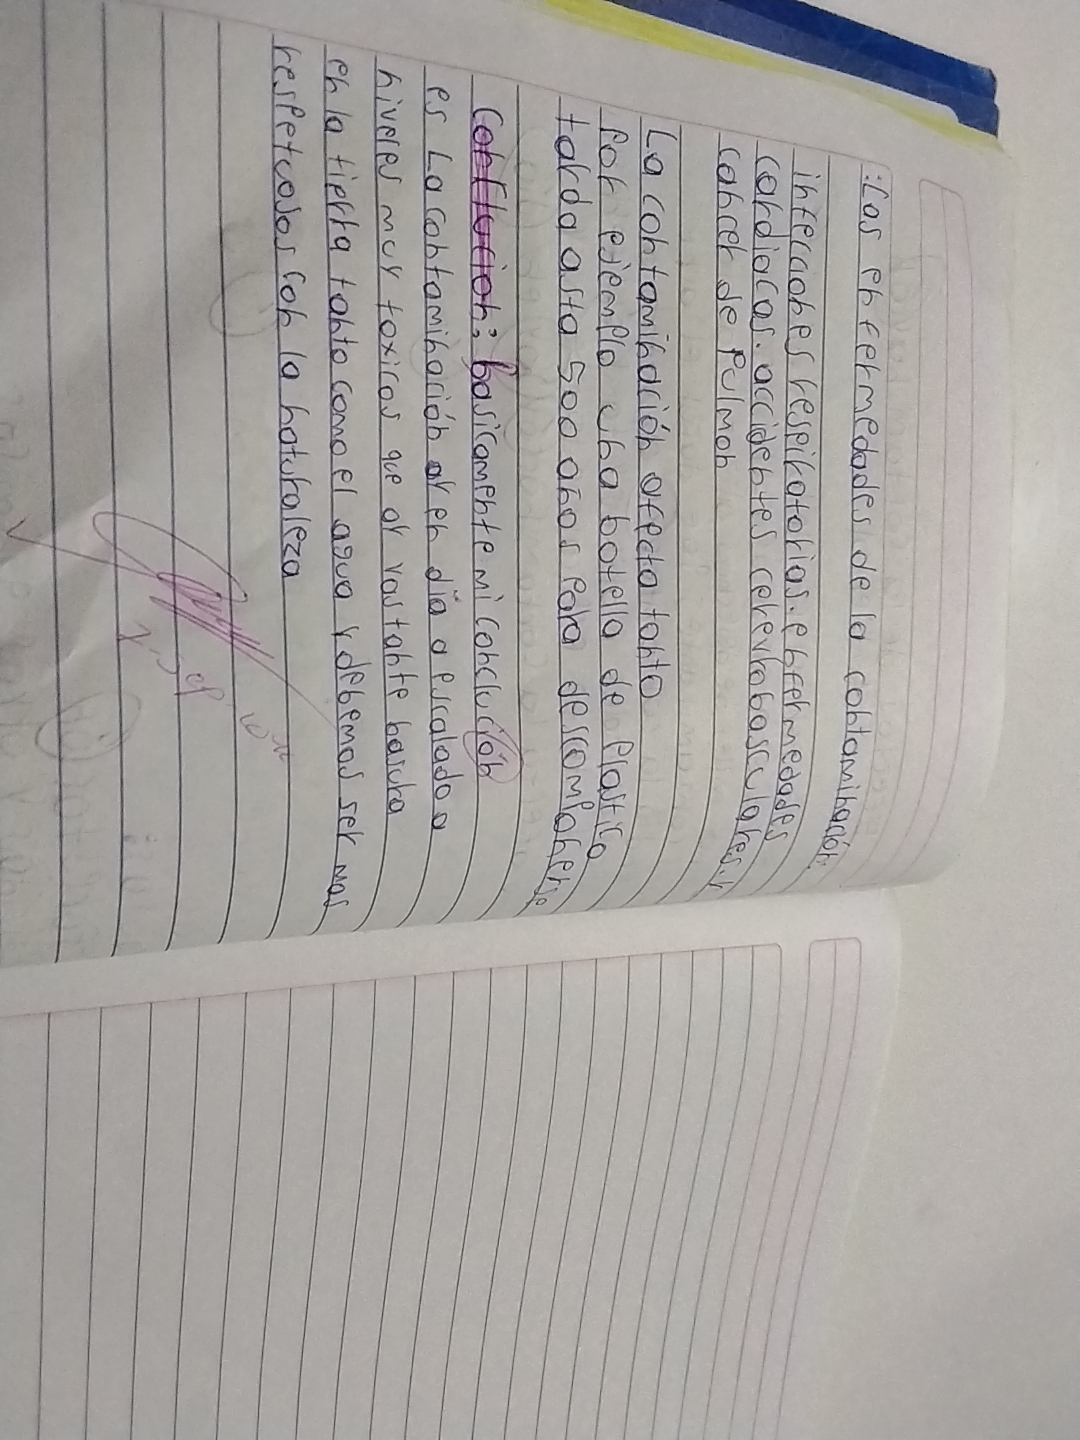 :Las enfermedades de la contaminación:
infecciones respiratorias. enfermedades
cardiacas. accidentes cerevrobasculares. y
cancer de pulmon
La contaminación afecta tanto
por ejemplo una botella de plastico
tarda asta 500 años para descomponerse
Conclucion: basicamente mi conclución
es La contaminación al en día a escalado a
niveles muy toxicos que ay vastante basura
en la tierra tanto como el agua y debemos ser mas
respetuosos con la naturaleza